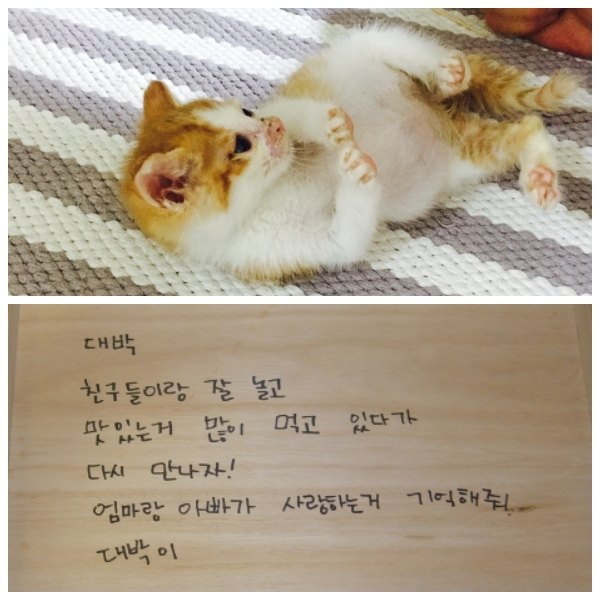 대박
친구들이랑 잘 놀고
맛있는거 많이 먹고 있다가
다시 만나자!
엄마랑 아빠가 사랑하는거 기억해줘!
대박이